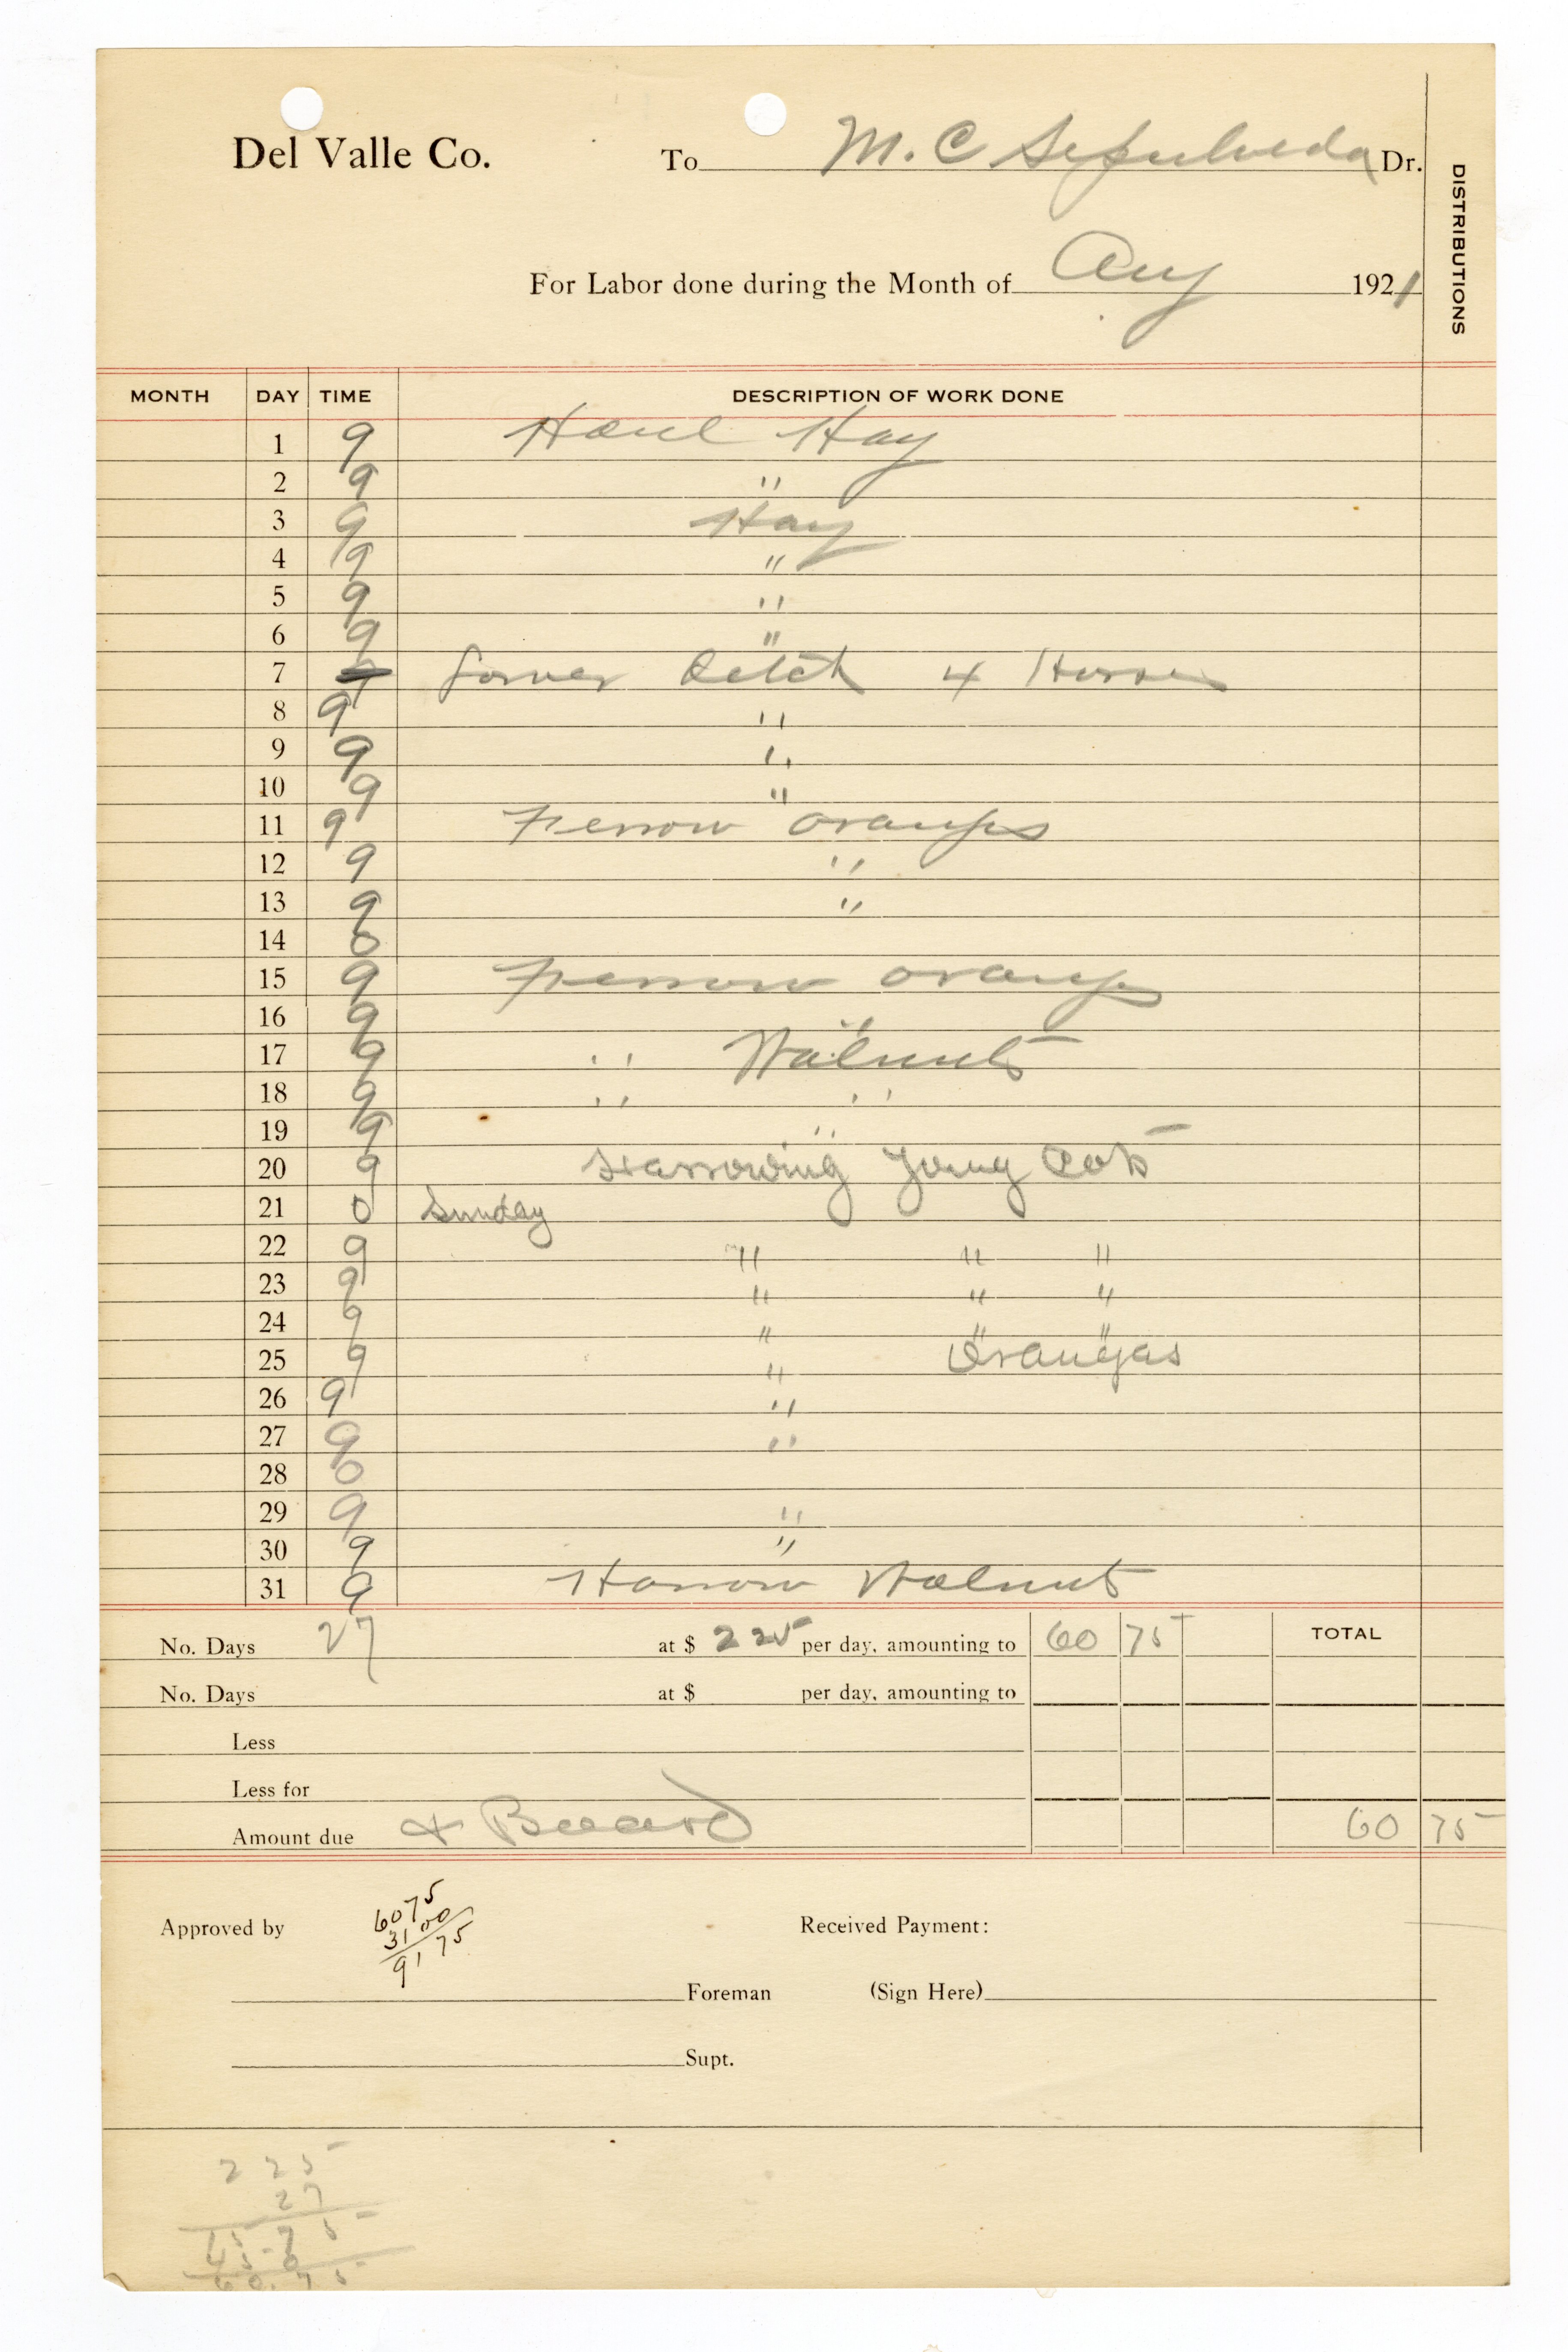 Del Valle Co. To M. C Sepulveda Dr.
DISTRIBUTIONS
For Labor done during the Month of Aug 1921
MONTH DAY TIME DESCRIPTION OF WORK DONE
1 9 Haul Hay
2 9 "
3 9 Hay
4 9 "
5 9 "
6 9 "
7 Ditch 4 Horses
8 9 "
9 9 "
10 9 "
11 9 Furrow oranges
12 9 "
13 9 "
14 0
15 9 Furrow oranges
16 9 "
17 9 " Walnuts
18 9 " "
19 9 "
20 9 Harrowing Young Cots
21 0 Sunday
22 9 " " "
23 9 " " "
24 9 " " "
25 9 " Orangas
26 9 "
27 9 "
28 0
29 9 "
30 9 "
31 9 Harrow Walnuts
No. Days 27 at $ 2 25 per day, amounting to 60 75 TOTAL
No. Days at $ per day, amounting to
Less
Less for
Amount due & Board 60 75
6075
Approved by 3100 Received Payment:
9175
Foreman (Sign Here)
Supt.
2 25
27
15-75
45-0
60.75